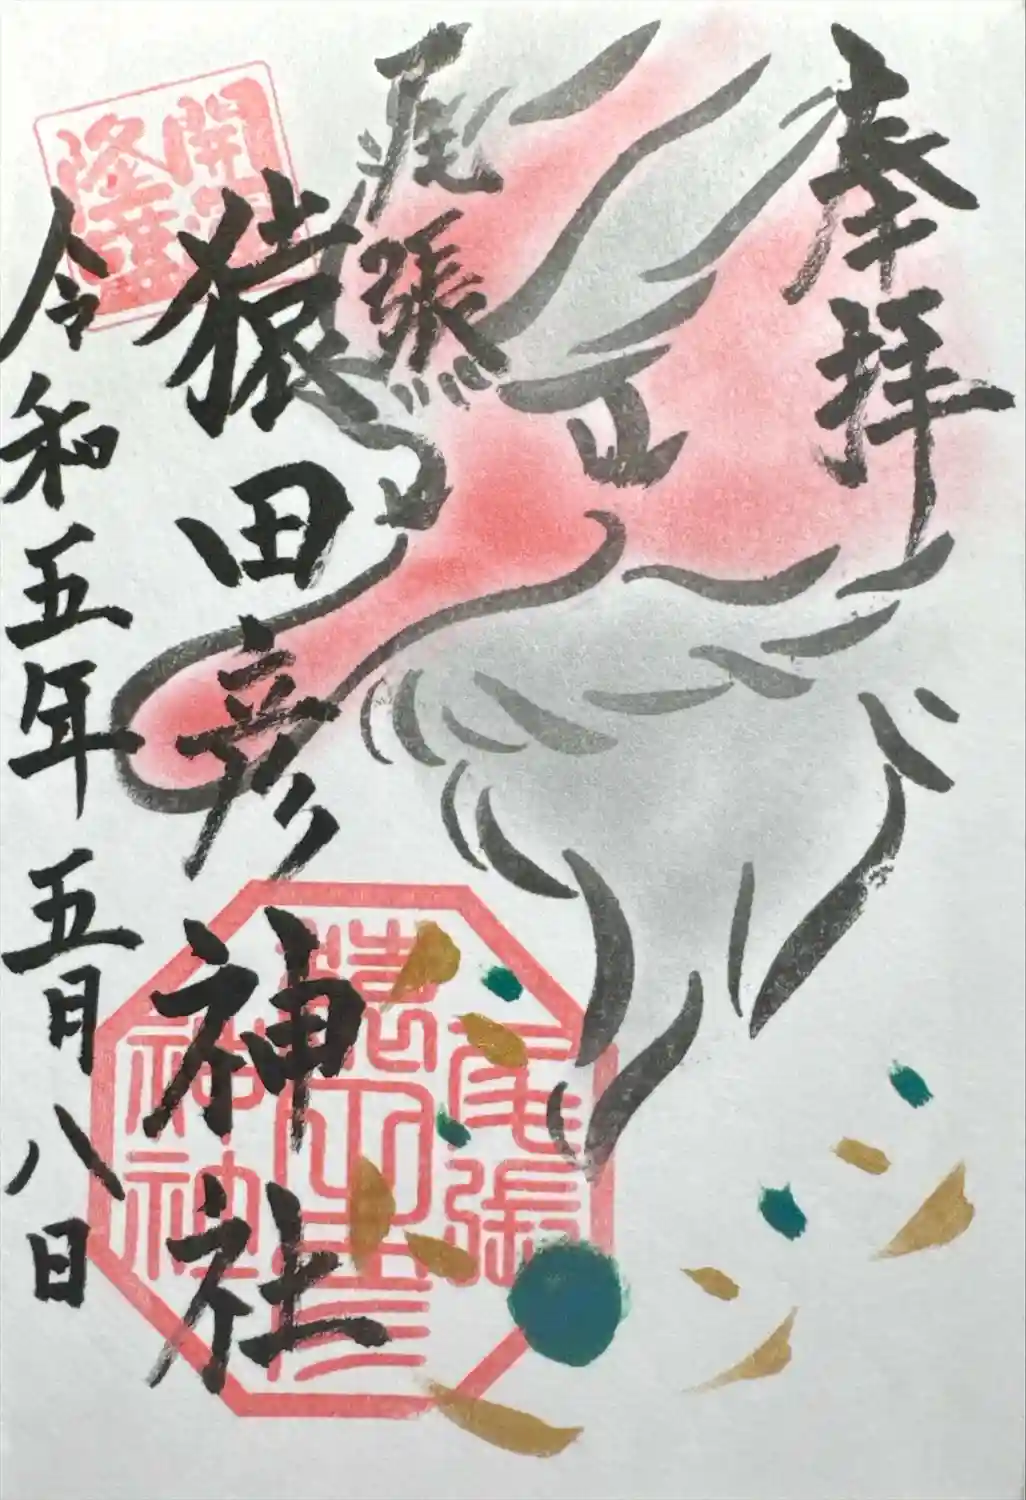 奉拝
尾張
猿田彦神社
令和五年五月八日
開運
隆華
尾張
猿田彦
神社